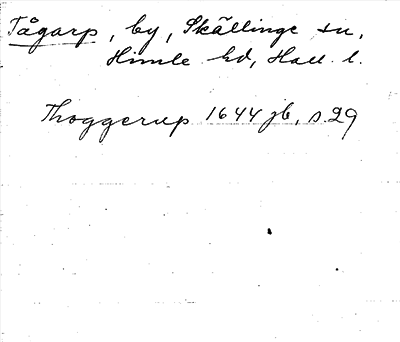 Tågarp, by, Skällinge sn,
Himle hd, Hall. l.
Thoggerup 1644 jb, s. 29